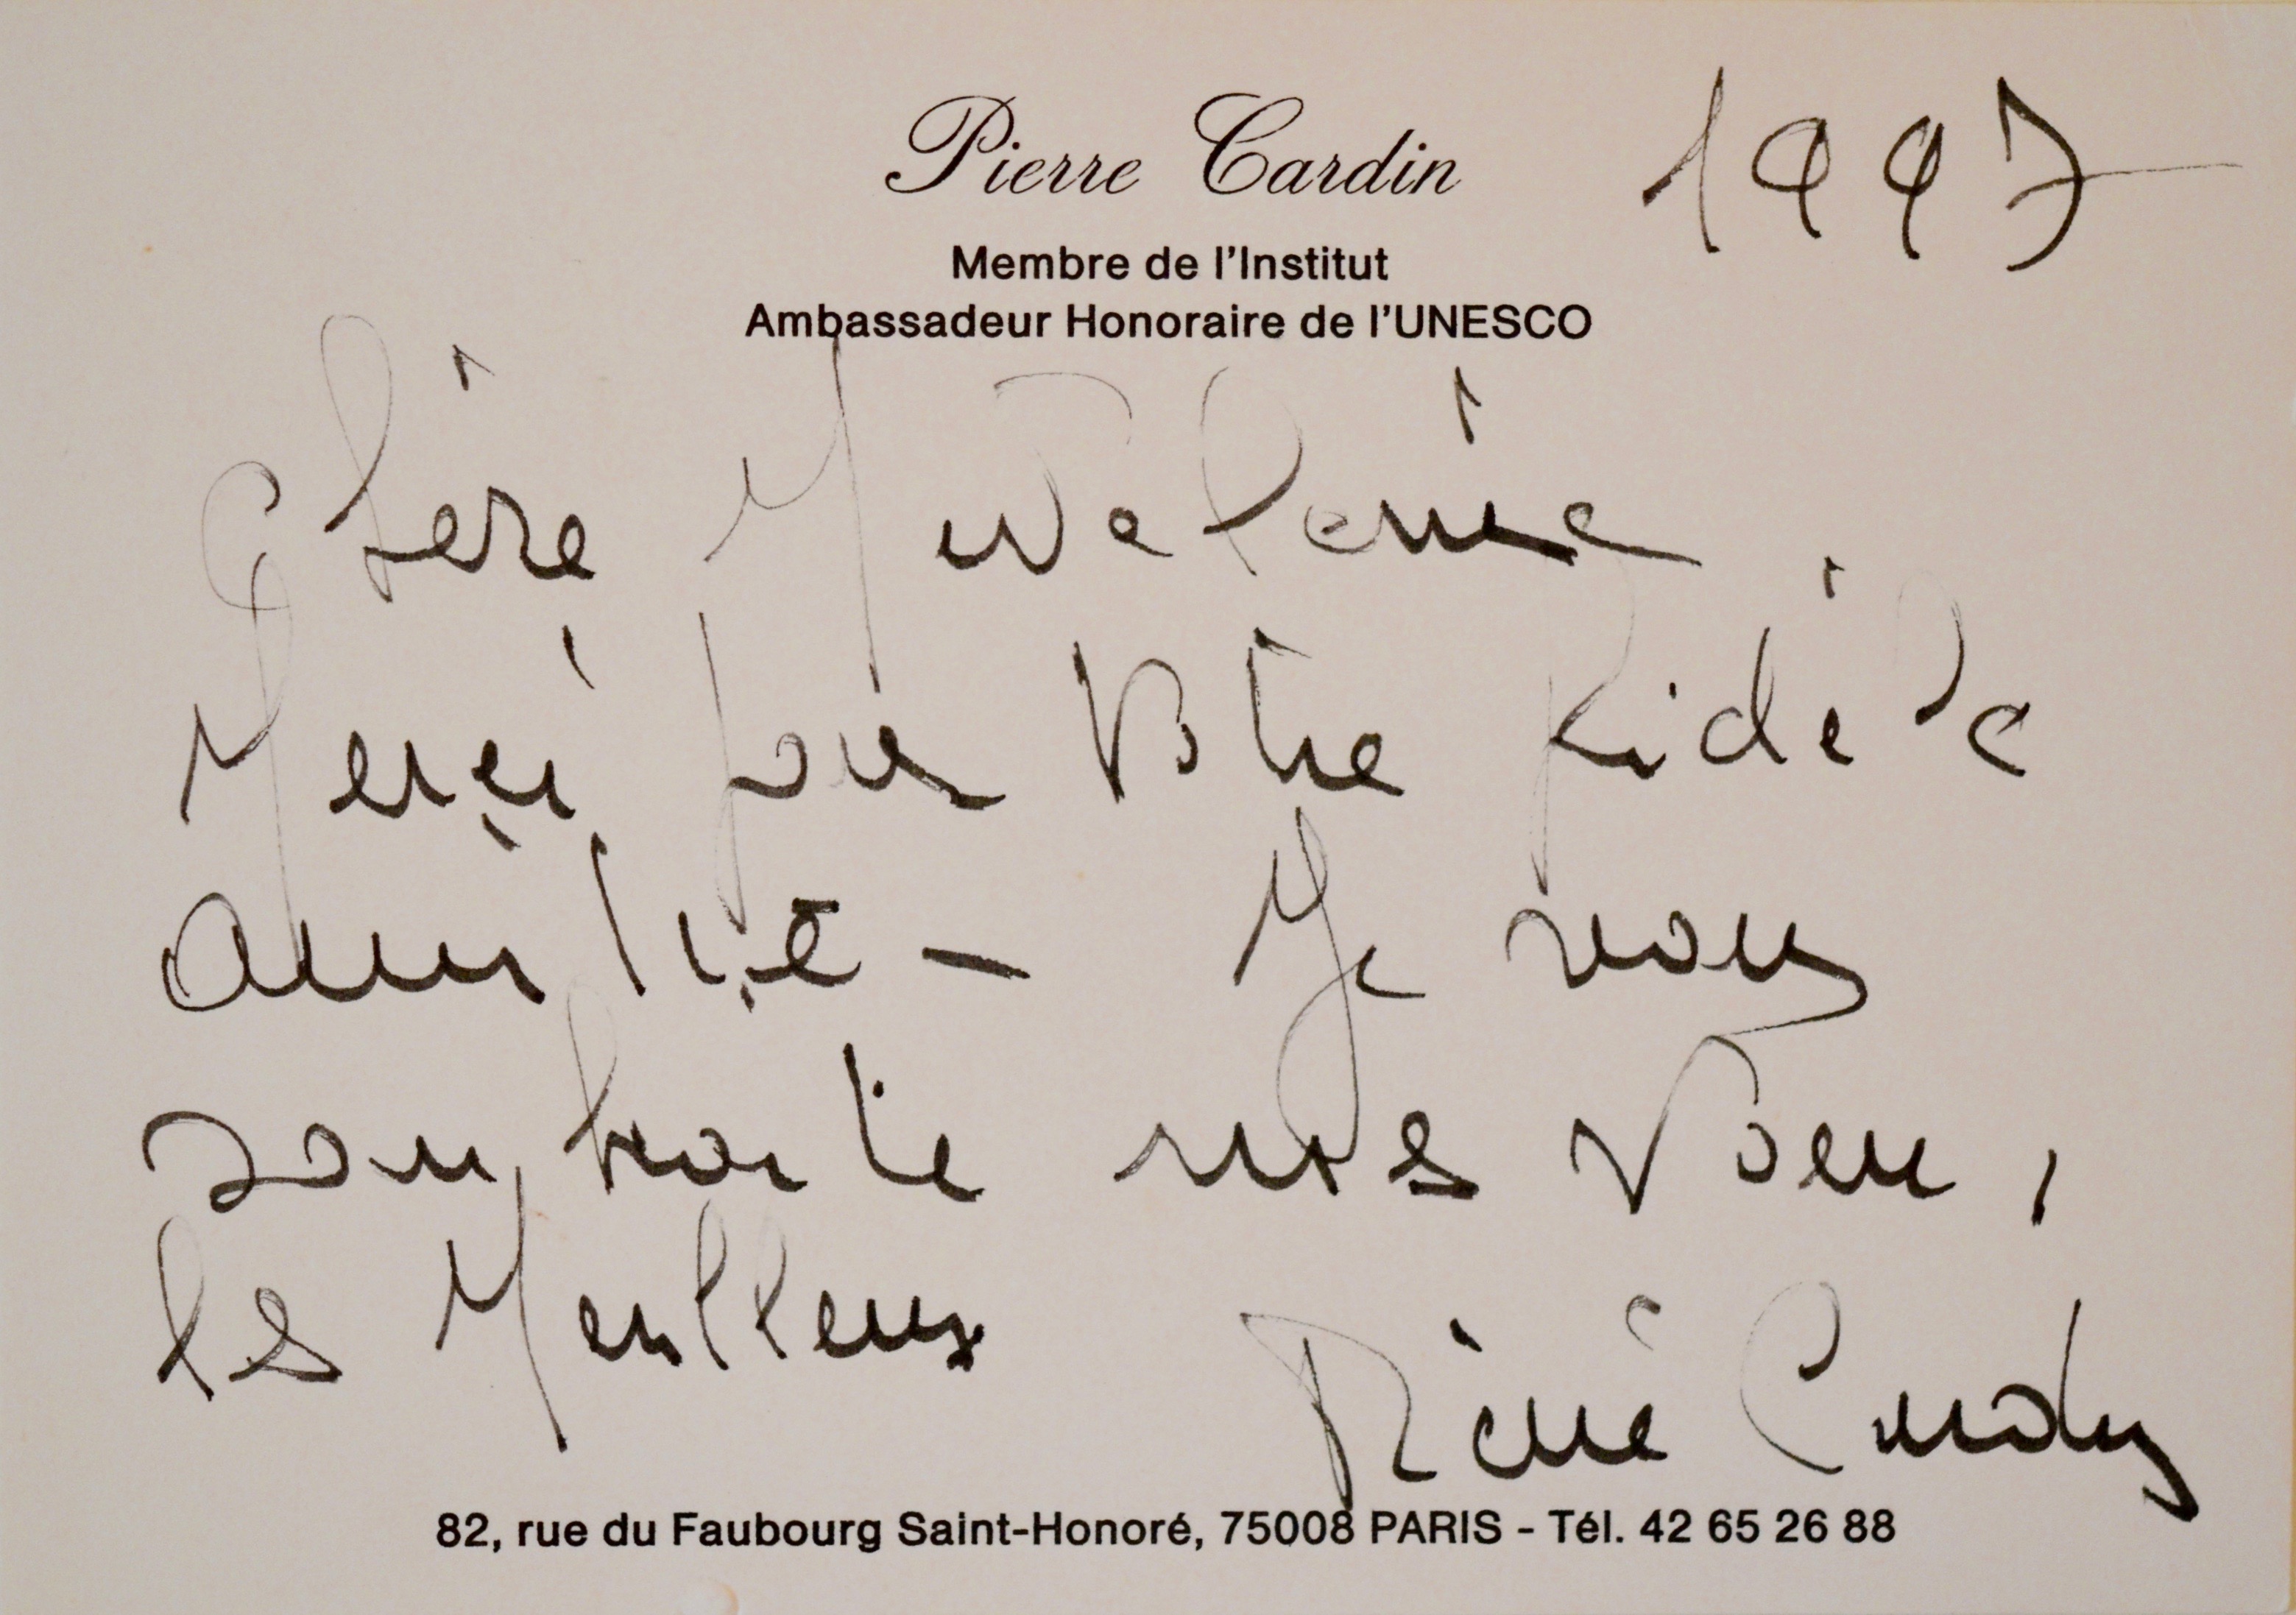 Pierre Cardin 1997
Membre de l'Institut
Ambassadeur Honoraire de l'UNESCO
Chère Madeleine
Merci pour Votre fidèle
amitié - Je vous
souhaite mes Voeux
les Meilleurs
Pierre Cardin
82, rue du Faubourg Saint-Honoré, 75008 PARIS - Tél. 42 65 26 88